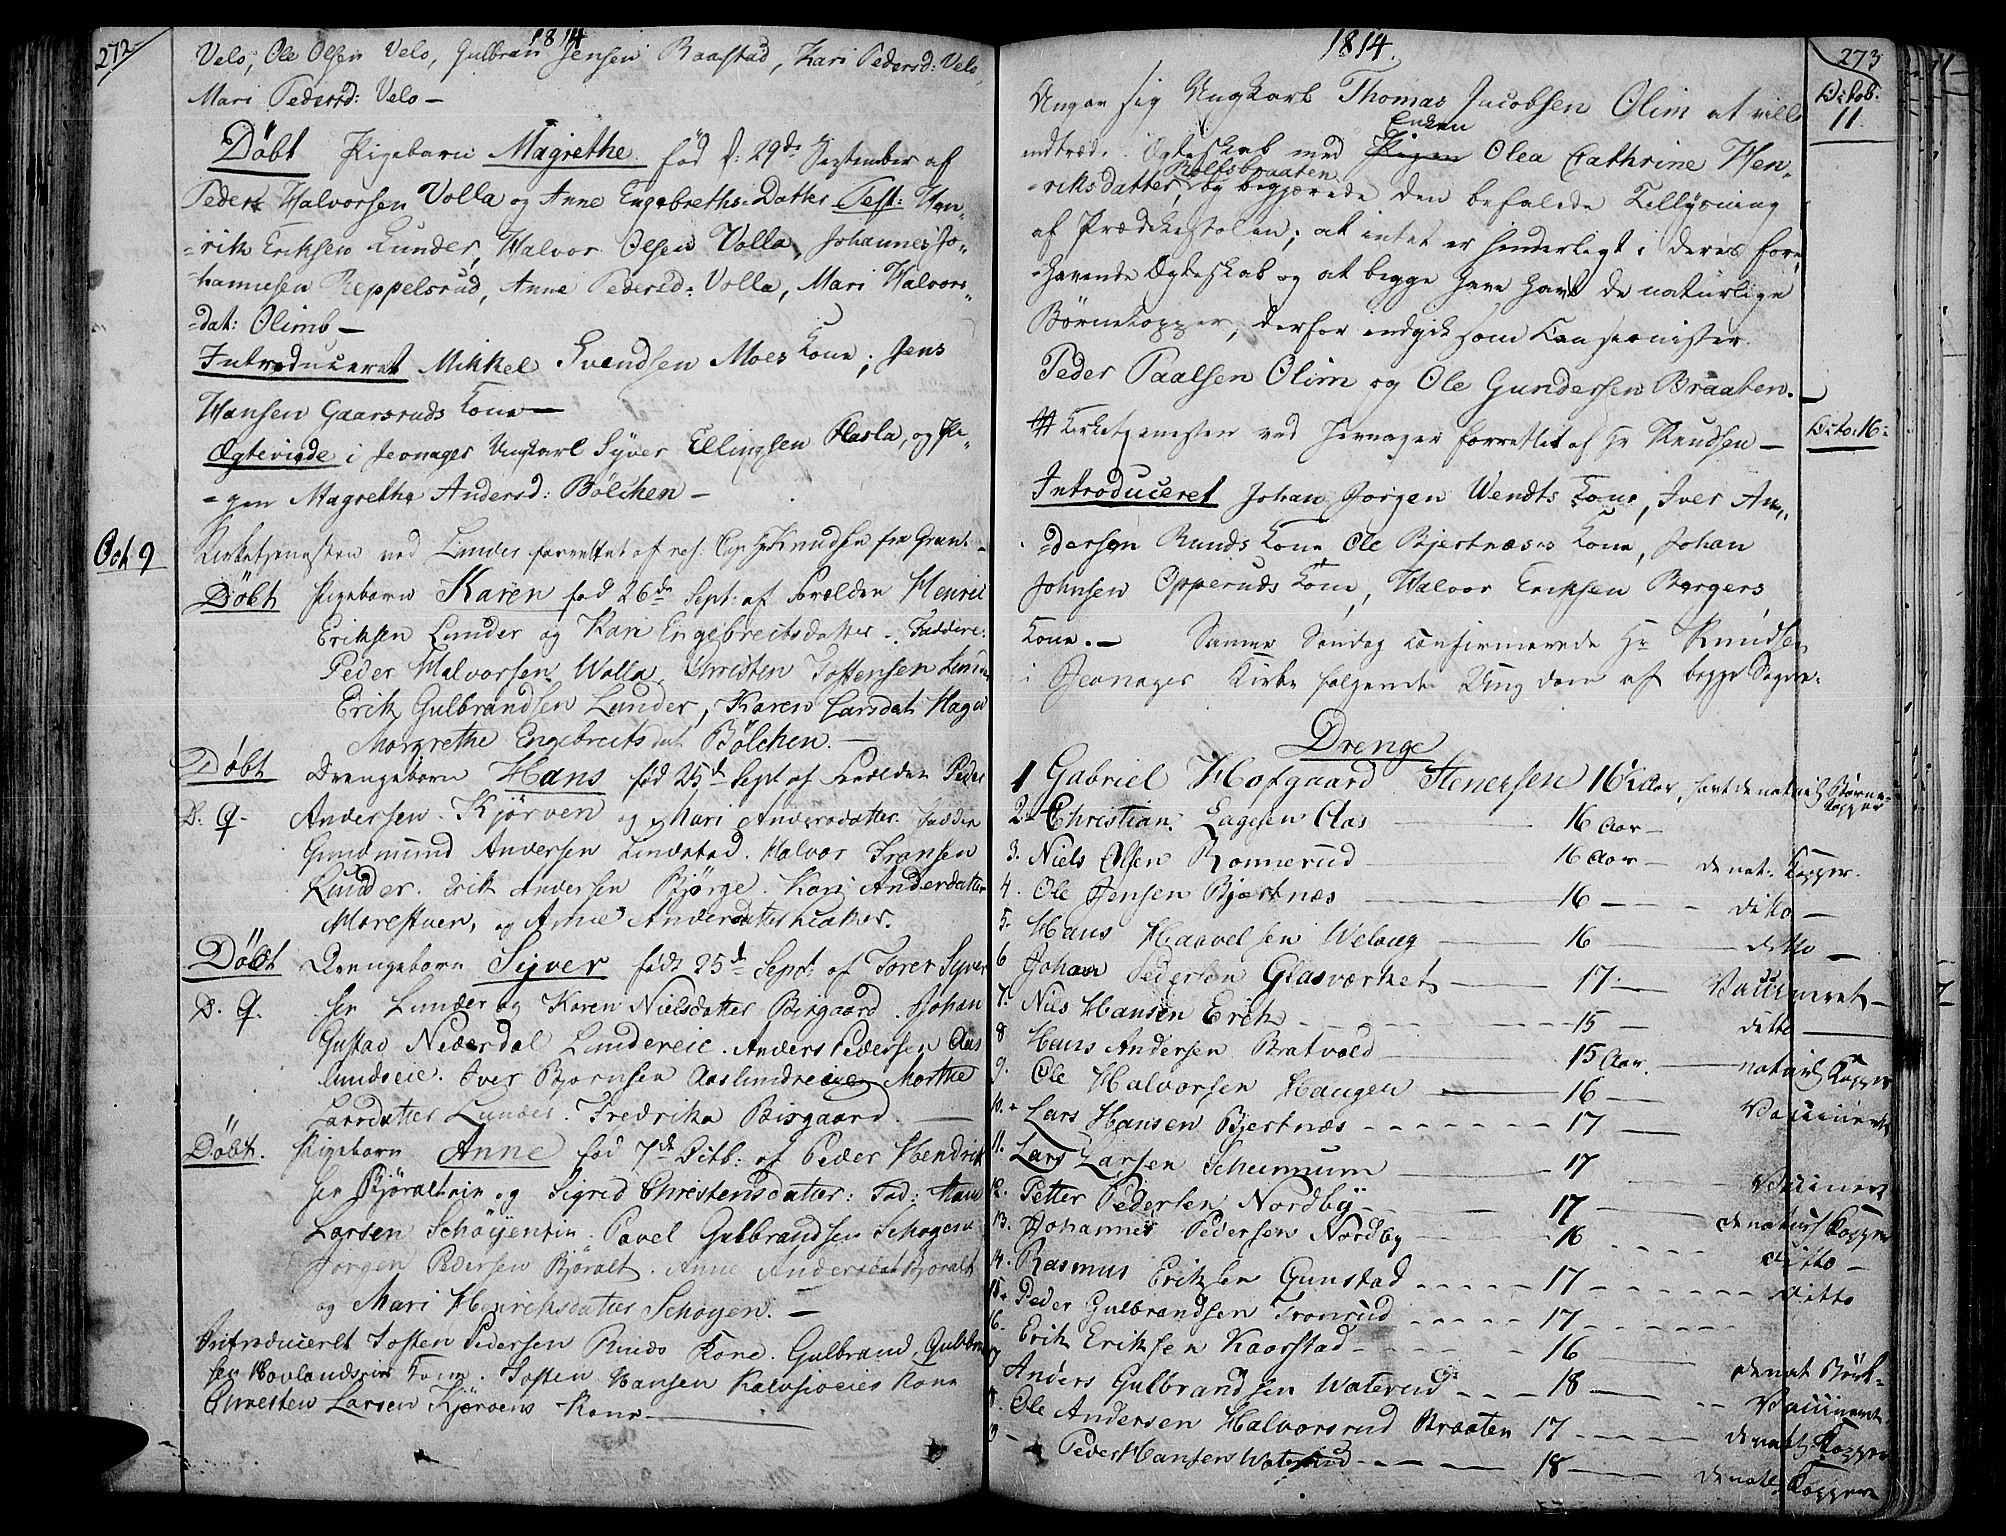 272
1814
Velo, Ole Olsen Velo, Gulbran Jensen Raastad, Kari Pedersd: Velo
Mari Pedersd: Velo —
Döbt Pigebarn Magrethe fød d: 29de September af
Peder Halvorsen Volla og Anne Engebreths Datter Test: Hen-
-rik Eriksen Lunder, Halvor Olsen Volla, Johannes Jo-
hannesen Reppelsrud, Anne Pedersd: Volla, Mari Halvors-
-dat: Olimb —
Introduceret Mikkel Svendsen Moes Kone, Jens
Hansen Gaarsruds Kone —
Ægteviede i Jevnager Ungkarl Syver Ellingsen Hasla, og Pi-
-gen Magrethe Andersd: Bölchen —
Oct 9
Kirketjenesten ved Lunder forrettet af res: Cap: Hr Knudsen fra Gran: -
Döbt Pigebarn Karen fød 26de Sept: af Forælden Henric
Eriksen Lunder og Kari Engebreitsdatter. Faddere:
Peder Halvorsen Wolla, Christen Tostensen Lun
Erik Gulbrandsen Lunder, Karen Larsdat Hagen
Margrethe Engebreitsdat Bölchen. —
Döbt Drengebarn Hans fød 25d Sept af Forælden Peder
D. 9- Andersen Kjörven og Mari Andersdatter Fadder
Gundmund Andersen Lindstad. Halvor Fransen
Lunder. Erik Andersen Bjørge. Kari Andersdatter
Morestuen, og Anne Andersdatter
Döbt Drengebarn Syver født 25d Sept: af Torer Syver
D. 9. sen Lunder og Karen Nielsdatter Bisgaard. Johan
Gustad Nederdal Lundereie. Anders Pedersen Aas
lundseie. Iver Bjornsen Aaslundseie Morthe
Larsdatter Lunder. Fredrika Bisgaard. —
Döbt. Pigebarn Anne fød 7de Octb: af Peder Hendrik
sen Björalteie og Sigrid Christensdatter: Fad: Hans
Larsen Schöyenein. Pavel Gulbrandsen Schøyen
Jorgen Pedersen Björalt. Anne Andersdat Björalt
og Mari Henrichsdatter Schoyen. —
Introduceret Tosten Pedersen Ruuds Kone. Gulbrand Gulbran
sen Hovlandseies Kone. Tosten Hansen Kalvsioeies Kone
Christen Larsen Kjørvens Kone —
1814.
273
Octob:
11
Angav sig Ungkarl Thomas Jacobsen Olim at ville
Enken
indtræde i Ægteskab med Pigen Olea Cathrine Hen-
Rolfsbraaten
-riksdatter, og begjærede den befalede Tillysning
af Prædikestolen; at intet er hinderligt i deres fore-
-havende Ægteskab og at begge have havt de naturlige
Børnekopper, derfor indgik som Cautionister
Peder Paalsen Olim og Ole Gundersen Braaten. —
Octo. 16:
Kirketjenesten ved Jevnager forrettet af Hr Knudsen —
Introduceret Johan Jorgen Wendts Kone, Iver An-
-dersen Ruuds Kone Ole Bjertnæses Kone, Johan
Johnsen Opperuds Kone, Halvor Eriksen Bergers
Kone. — Samme Søndag confirmerede Hr Knudsen
i Jevnager Kirke følgende Ungdom af begge Sogne:
Drenge
1 Gabriel Hofgaard Stenersen 16½ Aar, havt de naturl Børne-
kopper
2. Christian Lagesen Aas — 16 Aar —
3. Niels Olsen Ronnerud — 16 Aar — de nat: Kopper.
4. Ole Jensen Bjertnæs — 16 — ditto —
5. Hans Haavelsen Weloug — 16 — ditto —
6 Johan Pedersen Glasværket — 17. — Vaccineret —
7. Nils Hansen Erik — 15 — ditto —
8 Hans Andersen Bratvold — 15 Aar. — naturl Kopper
9. Ole Halvorsen Haugen — 16 — Vaccineret
10. Lars Hansen Bjertnæs — 17 —
11. Lars Larsen Scheimum — 17 — Vaccineret
12. Petter Pedersen Nordby — 17 — de naturl Kopper
13. Johannes Pedersen Nordby — 16 — ditto —
14. Rasmus Eriksen Gunstad — 17 — ditto
15. Peder Gulbrandsen Tronrud — 17 —
16. Erik Eriksen Kaarstad — 16 — de nat Börk-
17 Anders Gulbrandsen Waterud — 18 — Vaccineret
8. Ole Andersen Halvorsrud Braaten 17 — de natl Kopper
9 — Peder Hansen Waterud — 18 — de natl: Kopper